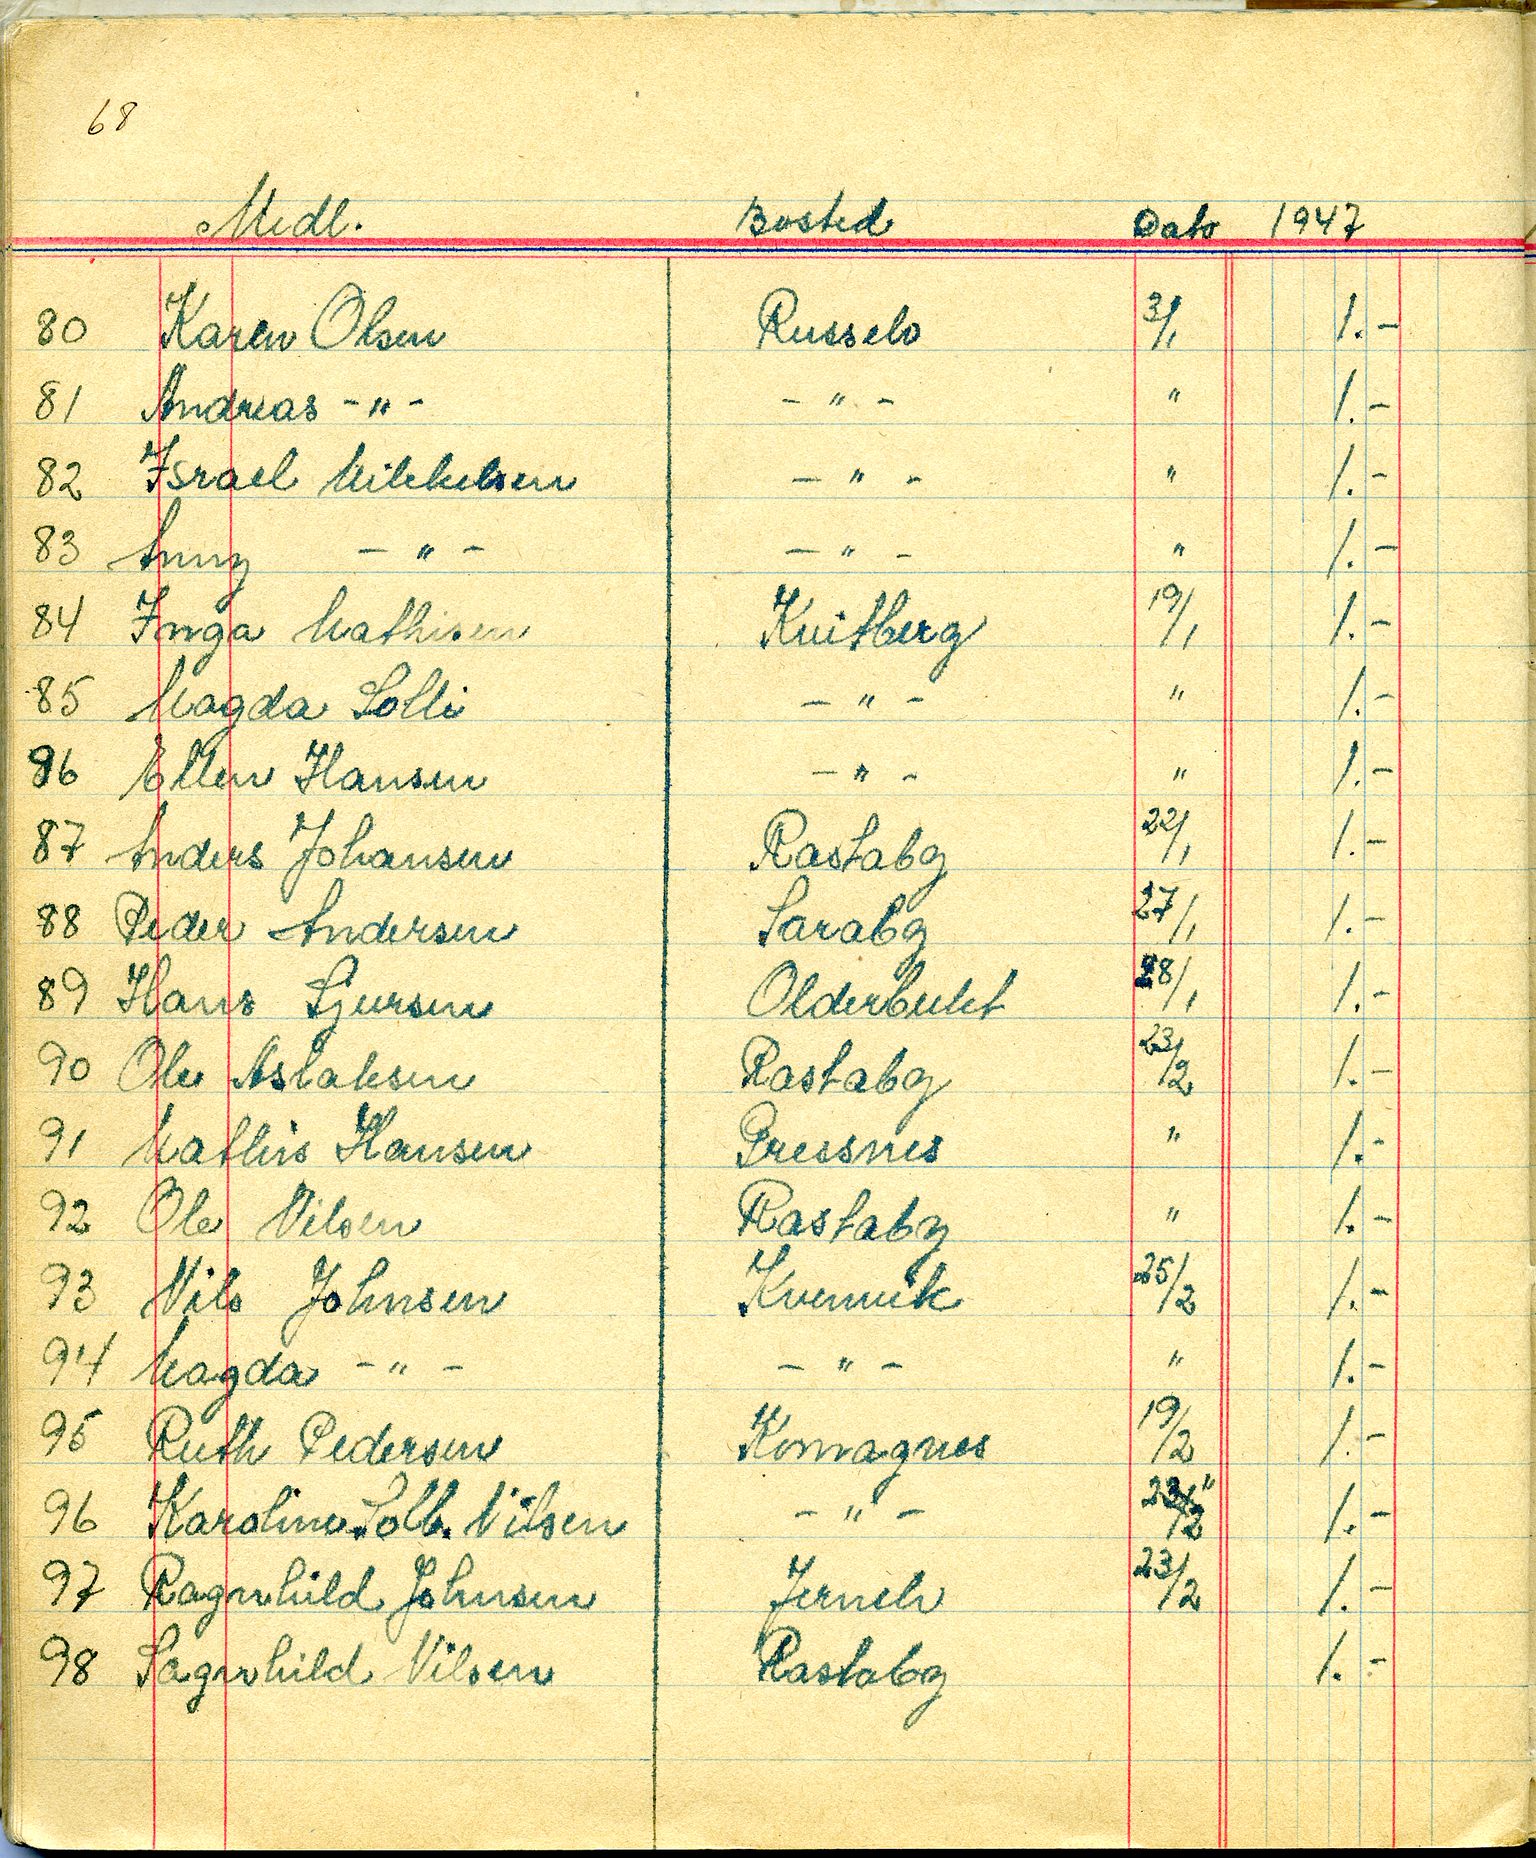 68
Medl. Bosted Dato 1947
80 Karen Olsen Russelv 3/1 1.-
81 Andreas -"- -"- " 1.-
82 Israel Mikkelsen -"- " 1.-
83 Anny -"- -"- " 1.-
84 Inga Mathisen Kvitberg 19/1 1.-
85 Magda Solli -"- " 1.-
86 Ellen Hansen -"- " 1.-
87 Anders Johansen Rastaby 22/1 1.-
88 Peder Andersen Saraby 27/1 1.-
89 Hans Sjursen Olderbukt 28/1 1.-
90 Ole Aslaksen Rastaby 23/2 1.-
91 Mathis Hansen Pressnes " 1.-
92 Ole Nilsen Rastaby " 1.-
93 Nils Johnsen Kvenvik 25/2 1.-
94 Magda -"- -"- " 1.-
95 Ruth Pedersen Komagnes 19/2 1.-
96 Karoline Solb. Nilsen -"- " 1.-
97 Ragnhild Johnsen Jernelv 23/2 1.-
98 Sagnhild Nilsen Rastaby 1.-